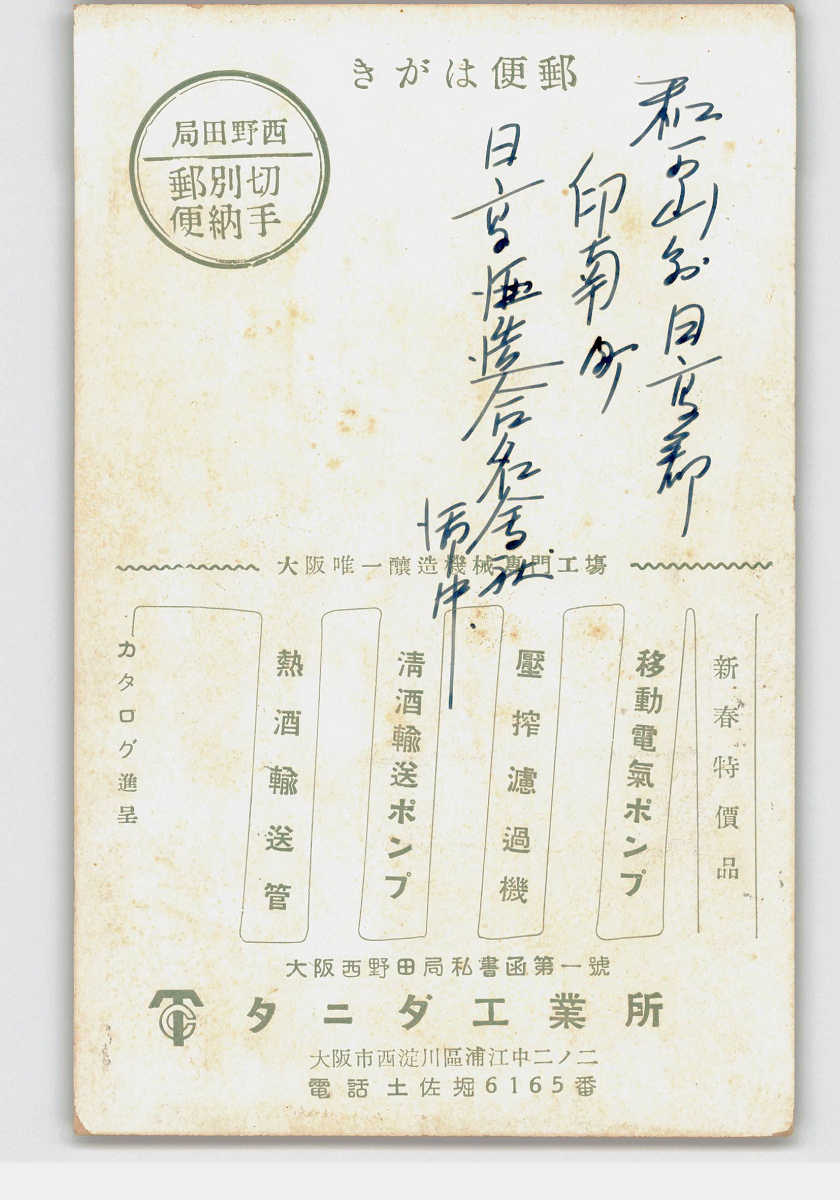 郵便はがき
西野田局
切手
別納
郵便
和歌山県日高郡
印南町
日高酒造合名会社
御中
大阪唯一釀造機械専門工塲
新春特價品
移動電氣ポンプ
壓搾濾過機
清酒輸送ポンプ
熱酒輸送管
カタログ進呈
大阪西野田局私書函第一號
タニダ工業所
大阪市西淀川區浦江中二ノ二
電話土佐堀6165番